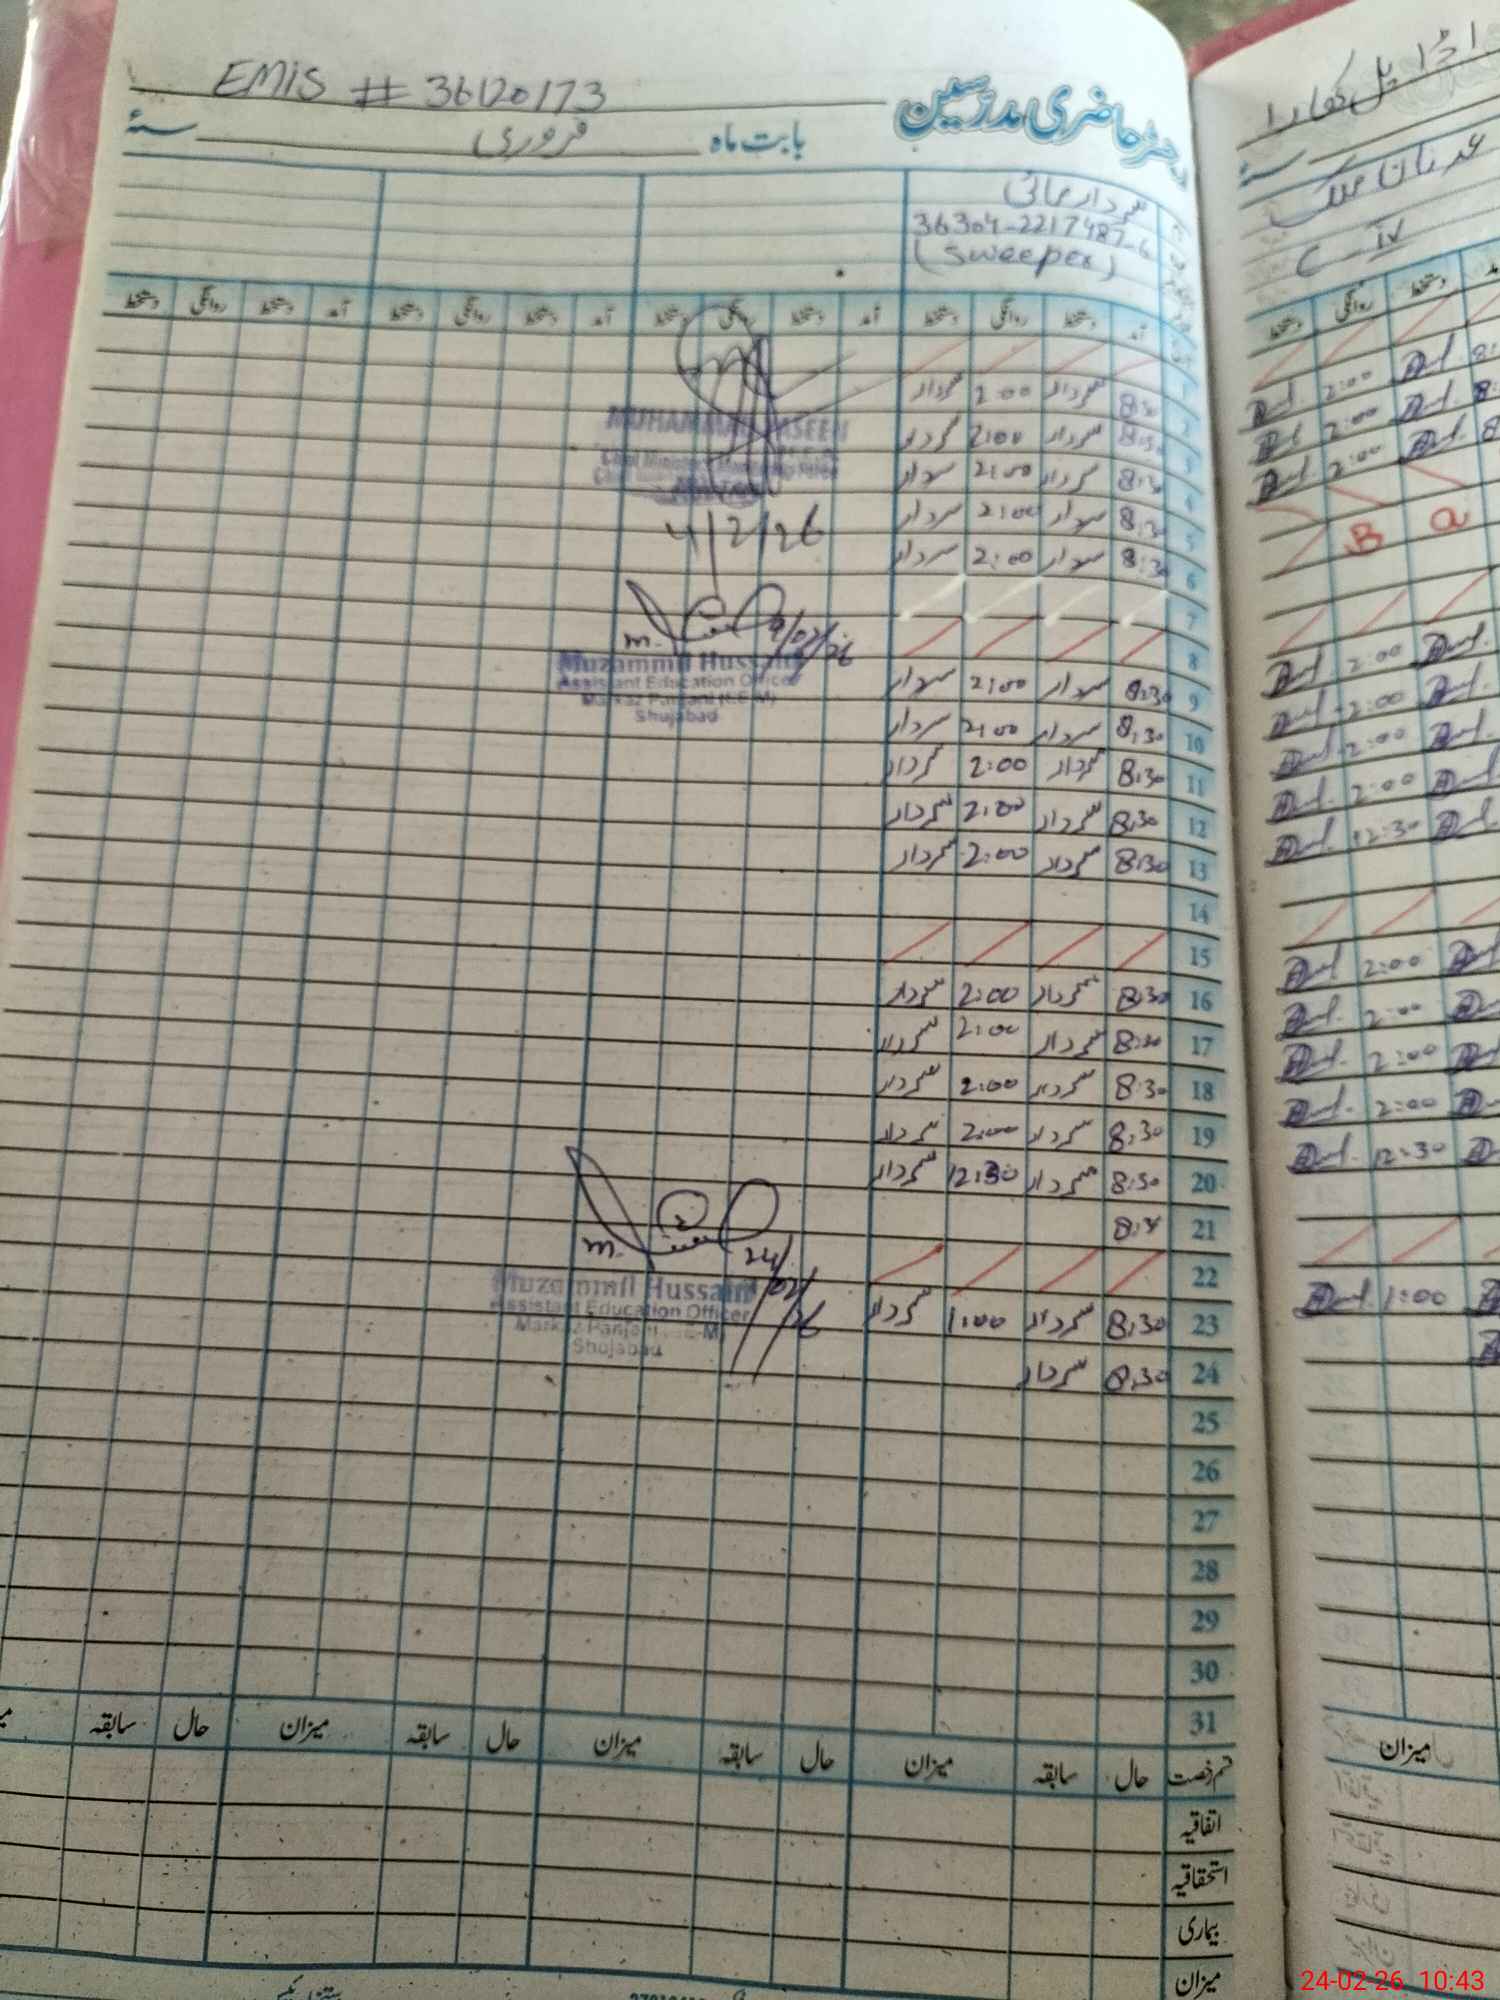 EMIS # 36120173
رجسٹر حاضری مدرسین
بابت ماہ فروری سنہ
سردار مائی
36304-2217487-6
(Sweeper)
آمد دستخط روانگی دستخط آمد دستخط روانگی دستخط آمد دستخط روانگی دستخط آمد دستخط روانگی دستخط
1
2 8:30 سردار 2:00 سردار
3 8:30 سردار 2:00 سردار
4 8:30 سردار 2:00 سردار
5 8:30 سردار 2:00 سردار
6 8:30 سردار 2:00 سردار
7
8
9 8:30 سردار 2:00 سردار
10 8:30 سردار 2:00 سردار
11 8:30 سردار 2:00 سردار
12 8:30 سردار 2:00 سردار
13 8:30 سردار 2:00 سردار
14
15
16 8:30 سردار 2:00 سردار
17 8:30 سردار 2:00 سردار
18 8:30 سردار 2:00 سردار
19 8:30 سردار 2:00 سردار
20 8:30 سردار 12:30 سردار
21
22
23 8:30 سردار 1:00 سردار
24 8:30 سردار
25
26
27
28
29
30
31
MUHAMMAD
4/2/26
9/02/26
Muzammil Hussain
Assistant Education Officer
Markaz Panjani
Shujabad
24/02/26
Muzammil Hussain
Assistant Education Officer
Markaz Panjani
Shujabad
قسم رخصت حال سابقہ میزان حال سابقہ میزان حال سابقہ میزان حال سابقہ
اتفاقیہ
استحقاقیہ
بیماری
میزان
سنہ
عدنان ملک
C-IV
دستخط روانگی دستخط
2:00
2:00
2:00
B a
2:00
2:00
2:00
2:00
12:30
2:00
2:00
2:00
2:00
12:30
1:00
میزان
24-02-26 10:43